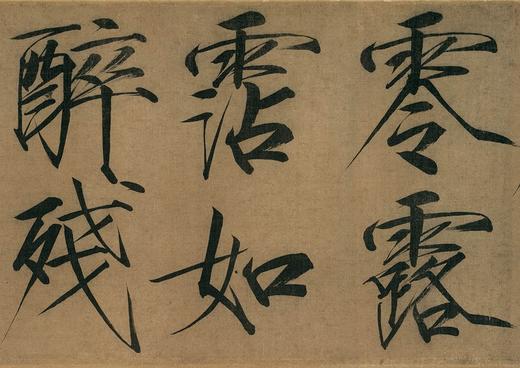 零露
霑如
醉殘